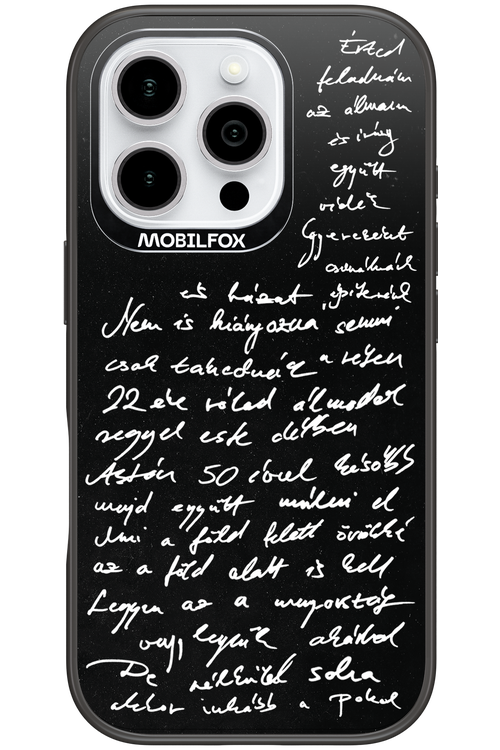 MOBILFOX
Érted
feladnám
az álmaim
és így
együtt
Gyerekeket
csinálnánk
és házat építenénk
Nem is hiányozna semmi
csak a részem
22 éve rólad álmodok
reggel este délben
Aztán 50 évvel később
majd együtt múlni el
Ami a föld felett örökké
az a föld alatt is kell
Legyen az a mennyország
vagy legyünk akárhol
De nélküled soha
akkor inkább a pokol